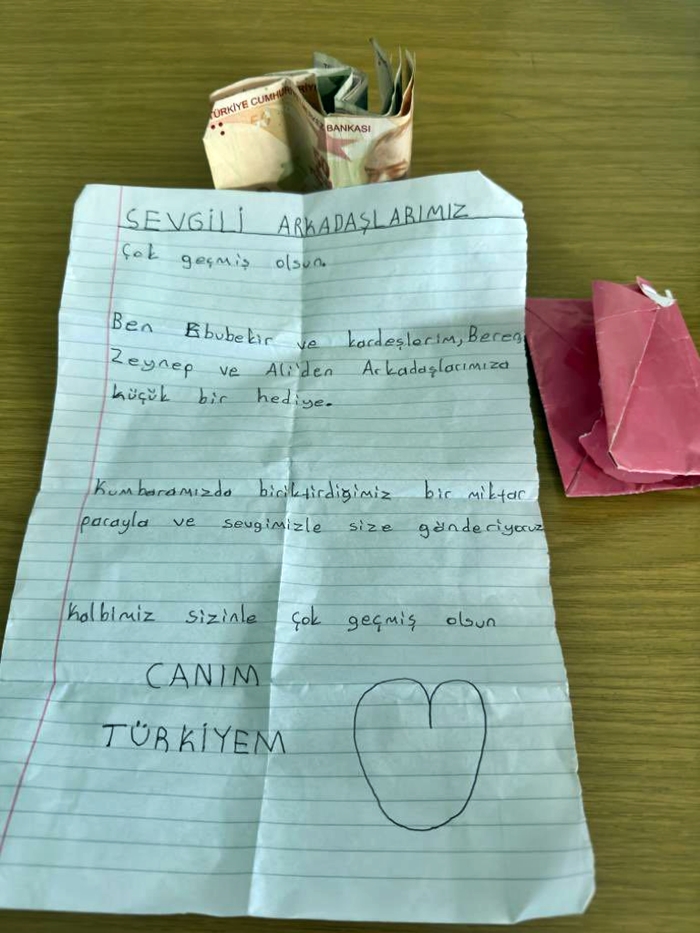 TÜRKİYE CUMHUR
BANKASI
SEVGİLİ ARKADAŞLARIMIZ
Çok geçmiş olsun.
Ben Ebubekir ve kardeşlerim, Beren
Zeynep ve Ali'den Arkadaşlarımıza
küçük bir hediye.
Kumbaramızda biriktirdiğimiz bir miktar
parayla ve sevgimizle size gönderiyoruz
Kalbimiz sizinle çok geçmiş olsun
CANIM
TÜRKİYEM